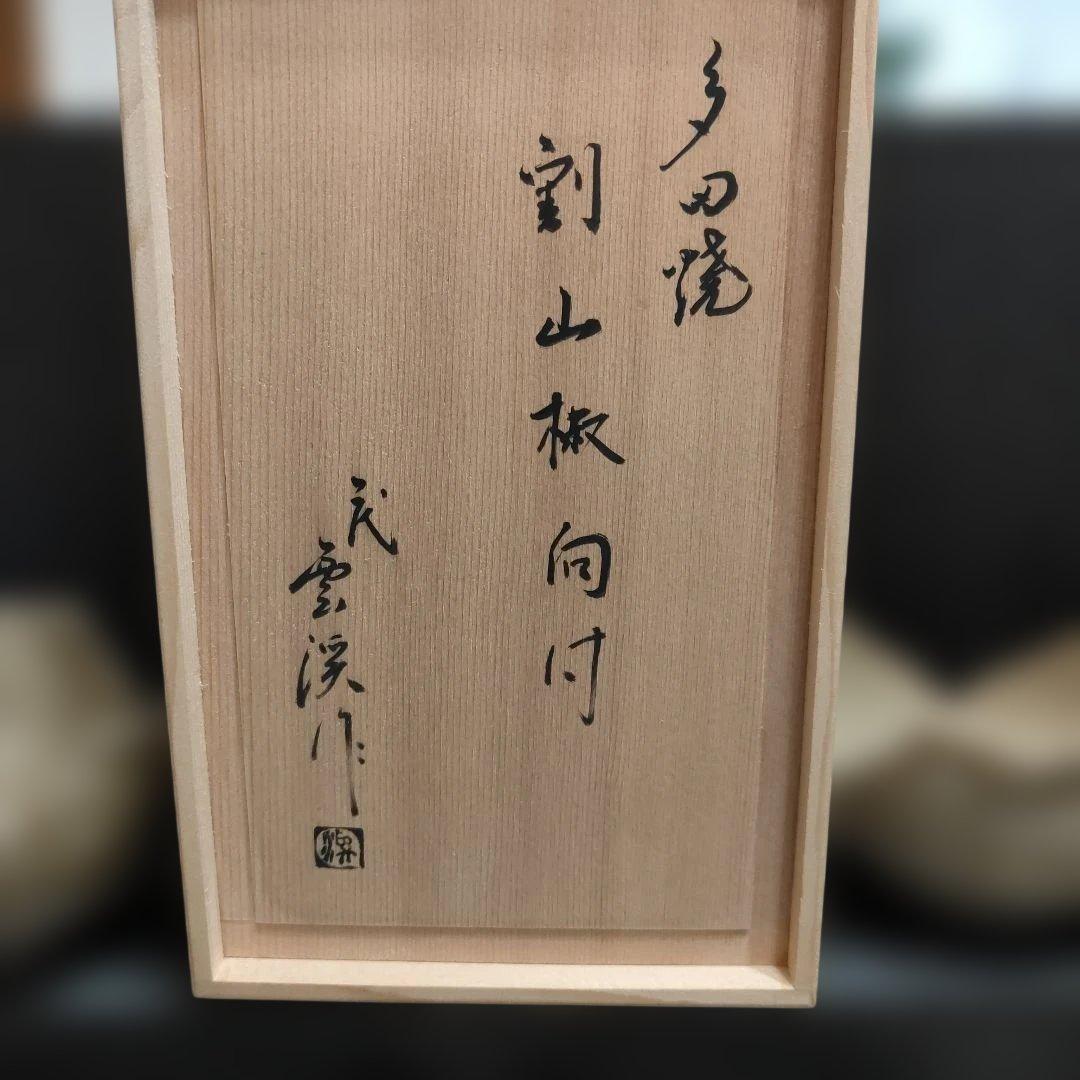 多田焼
割山椒向付
二代
雲渓作